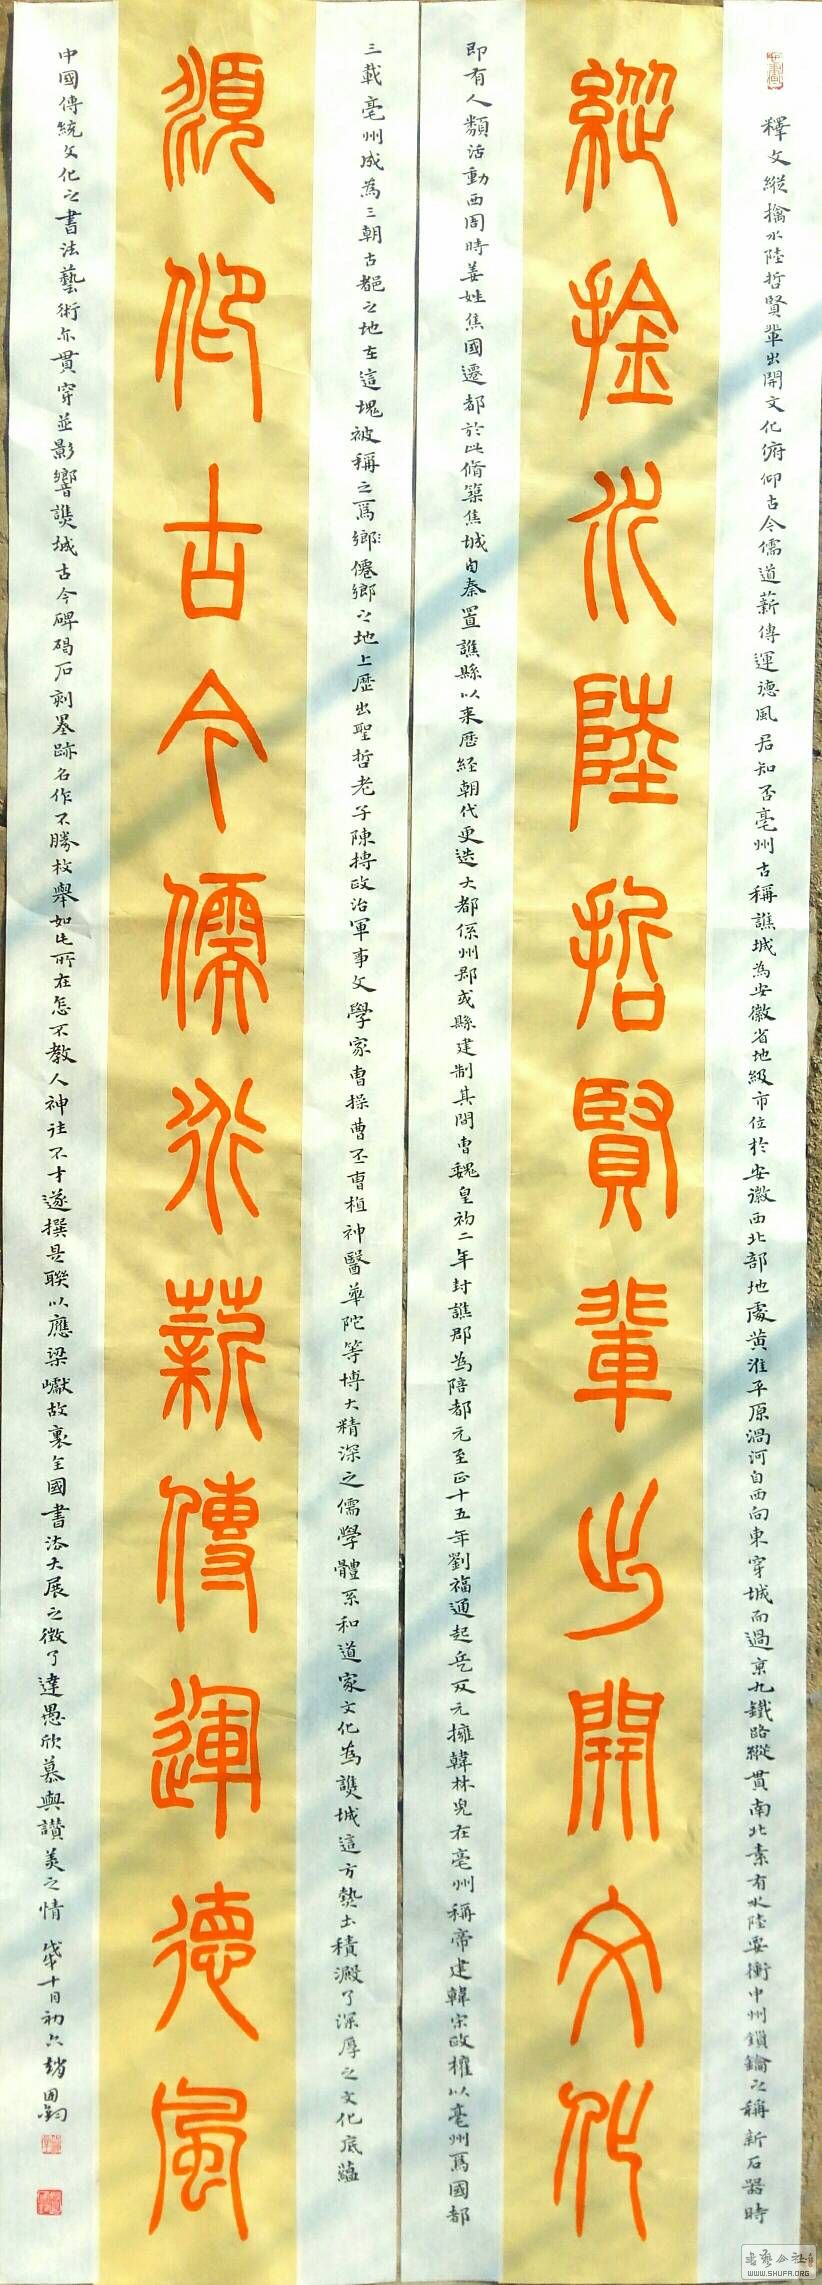 縱擒水陸哲賢輩出開文化
頫仰古今儒道薪傳運德風
釋文縱擒水陸哲賢輩出開文化俯仰古今儒道薪傳運德風君知否亳州古稱譙城為安徽省地級市位於安徽西北部地處黃淮平原渦河自西向東穿城而過京九鐵路縱貫南北素有水陸要衝中州鎖鑰之稱新石器時
即有人類活動西周時姜姓焦國遷都於此脩築焦城自秦置譙縣以来歷經朝代更迭大都係州郡或縣建制其間曹魏皇初二年封譙郡為陪都元至正十五年劉福通起兵反元擁韓林兒在亳州稱帝建韓宋政權以亳州爲國都
三載亳州成為三朝古都之地在這塊被稱之爲鄉僊鄉之地上歷出聖哲老子陳摶政治軍事文學家曹操曹丕曹植神醫華陀等博大精深之儒學體系和道家文化為譙城這方熱土積澱了深厚之文化底蘊
中國傳統文化之書法藝術亦貫穿並影響譙城古今碑碣石刻墨跡名作不勝枚舉如此所在怎不教人神往不才遂撰是聯以應梁巘故裏全國書法大展之徵了達愚欣慕與讚美之情 戊戌十月初六趙
書藝公社
WWW.SHUFA.ORG